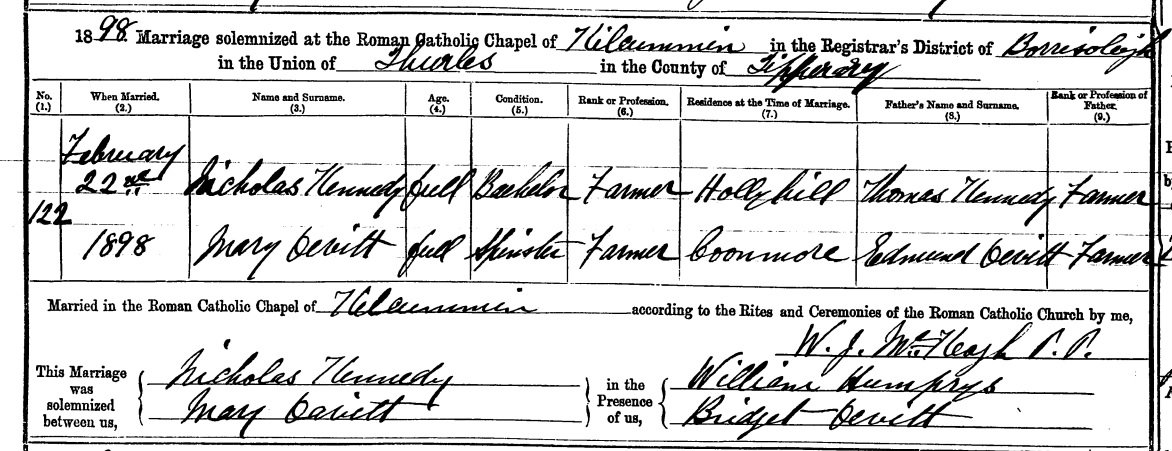 1898. Marriage solemnized at the Roman Catholic Chapel of Kilcummin in the Registrar's District of Borrisoleigh
in the Union of Thurles in the County of Tipperary
No. (1.) When Married. (2.) Name and Surname. (3.) Age. (4.) Condition. (5.) Rank or Profession. (6.) Residence at the Time of Marriage. (7.) Father's Name and Surname. (8.) Rank or Profession of Father. (9.)
February
22nd Nicholas Kennedy full Bachelor Farmer Hollyhill Thomas Kennedy Farmer
122
1898 Mary Devitt full Spinster Farmer Coonmore Edmund Devitt Farmer
Married in the Roman Catholic Chapel of Kilcummin according to the Rites and Ceremonies of the Roman Catholic Church by me,
W. J. McKeogh P.P.
This Marriage was solemnized between us,
Nicholas Kennedy
Mary Davitt
in the Presence of us,
William Humprys
Bridget Devitt